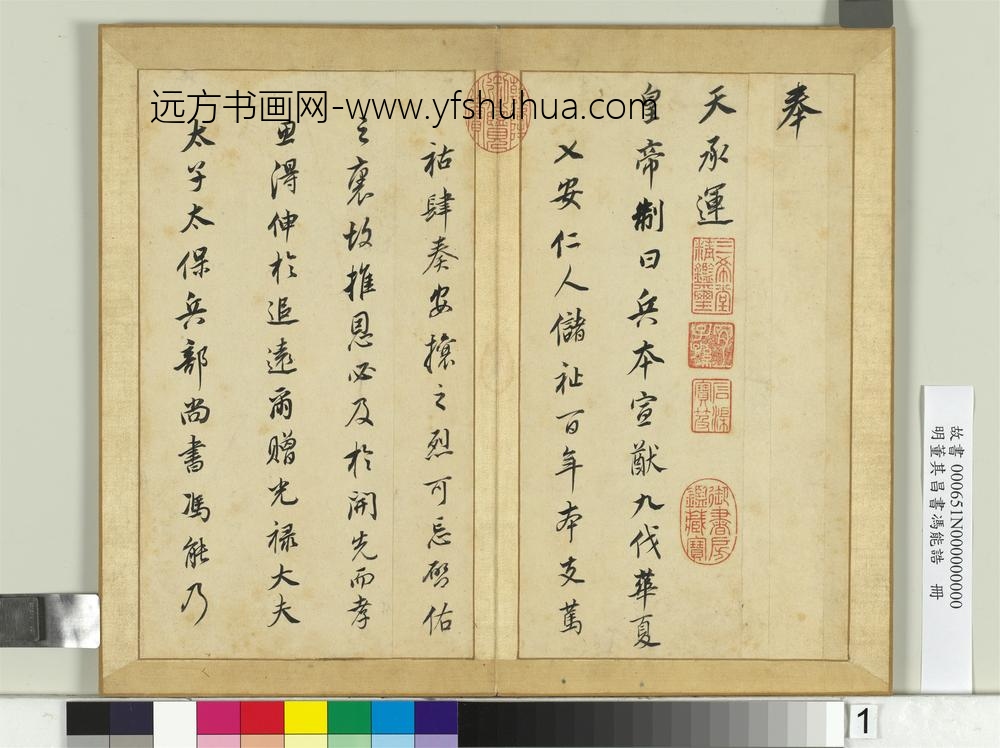 奉
天承運
皇帝制曰兵本宣猷九伐華夏
乂安仁人儲祉百年本支篤
祜肆奏安攘之烈可忘啓佑
之裏故推恩必及於開先而孝
思得伸於追遠爾贈光禄大夫
太子太保兵部尚書馮能乃
三希堂精鑑璽
宜子孫
石渠寶笈
御書房鑑藏寶
远方书画网-www.yfshuhua.com
故書 000651N000000000
明董其昌書馮能誥 冊
1